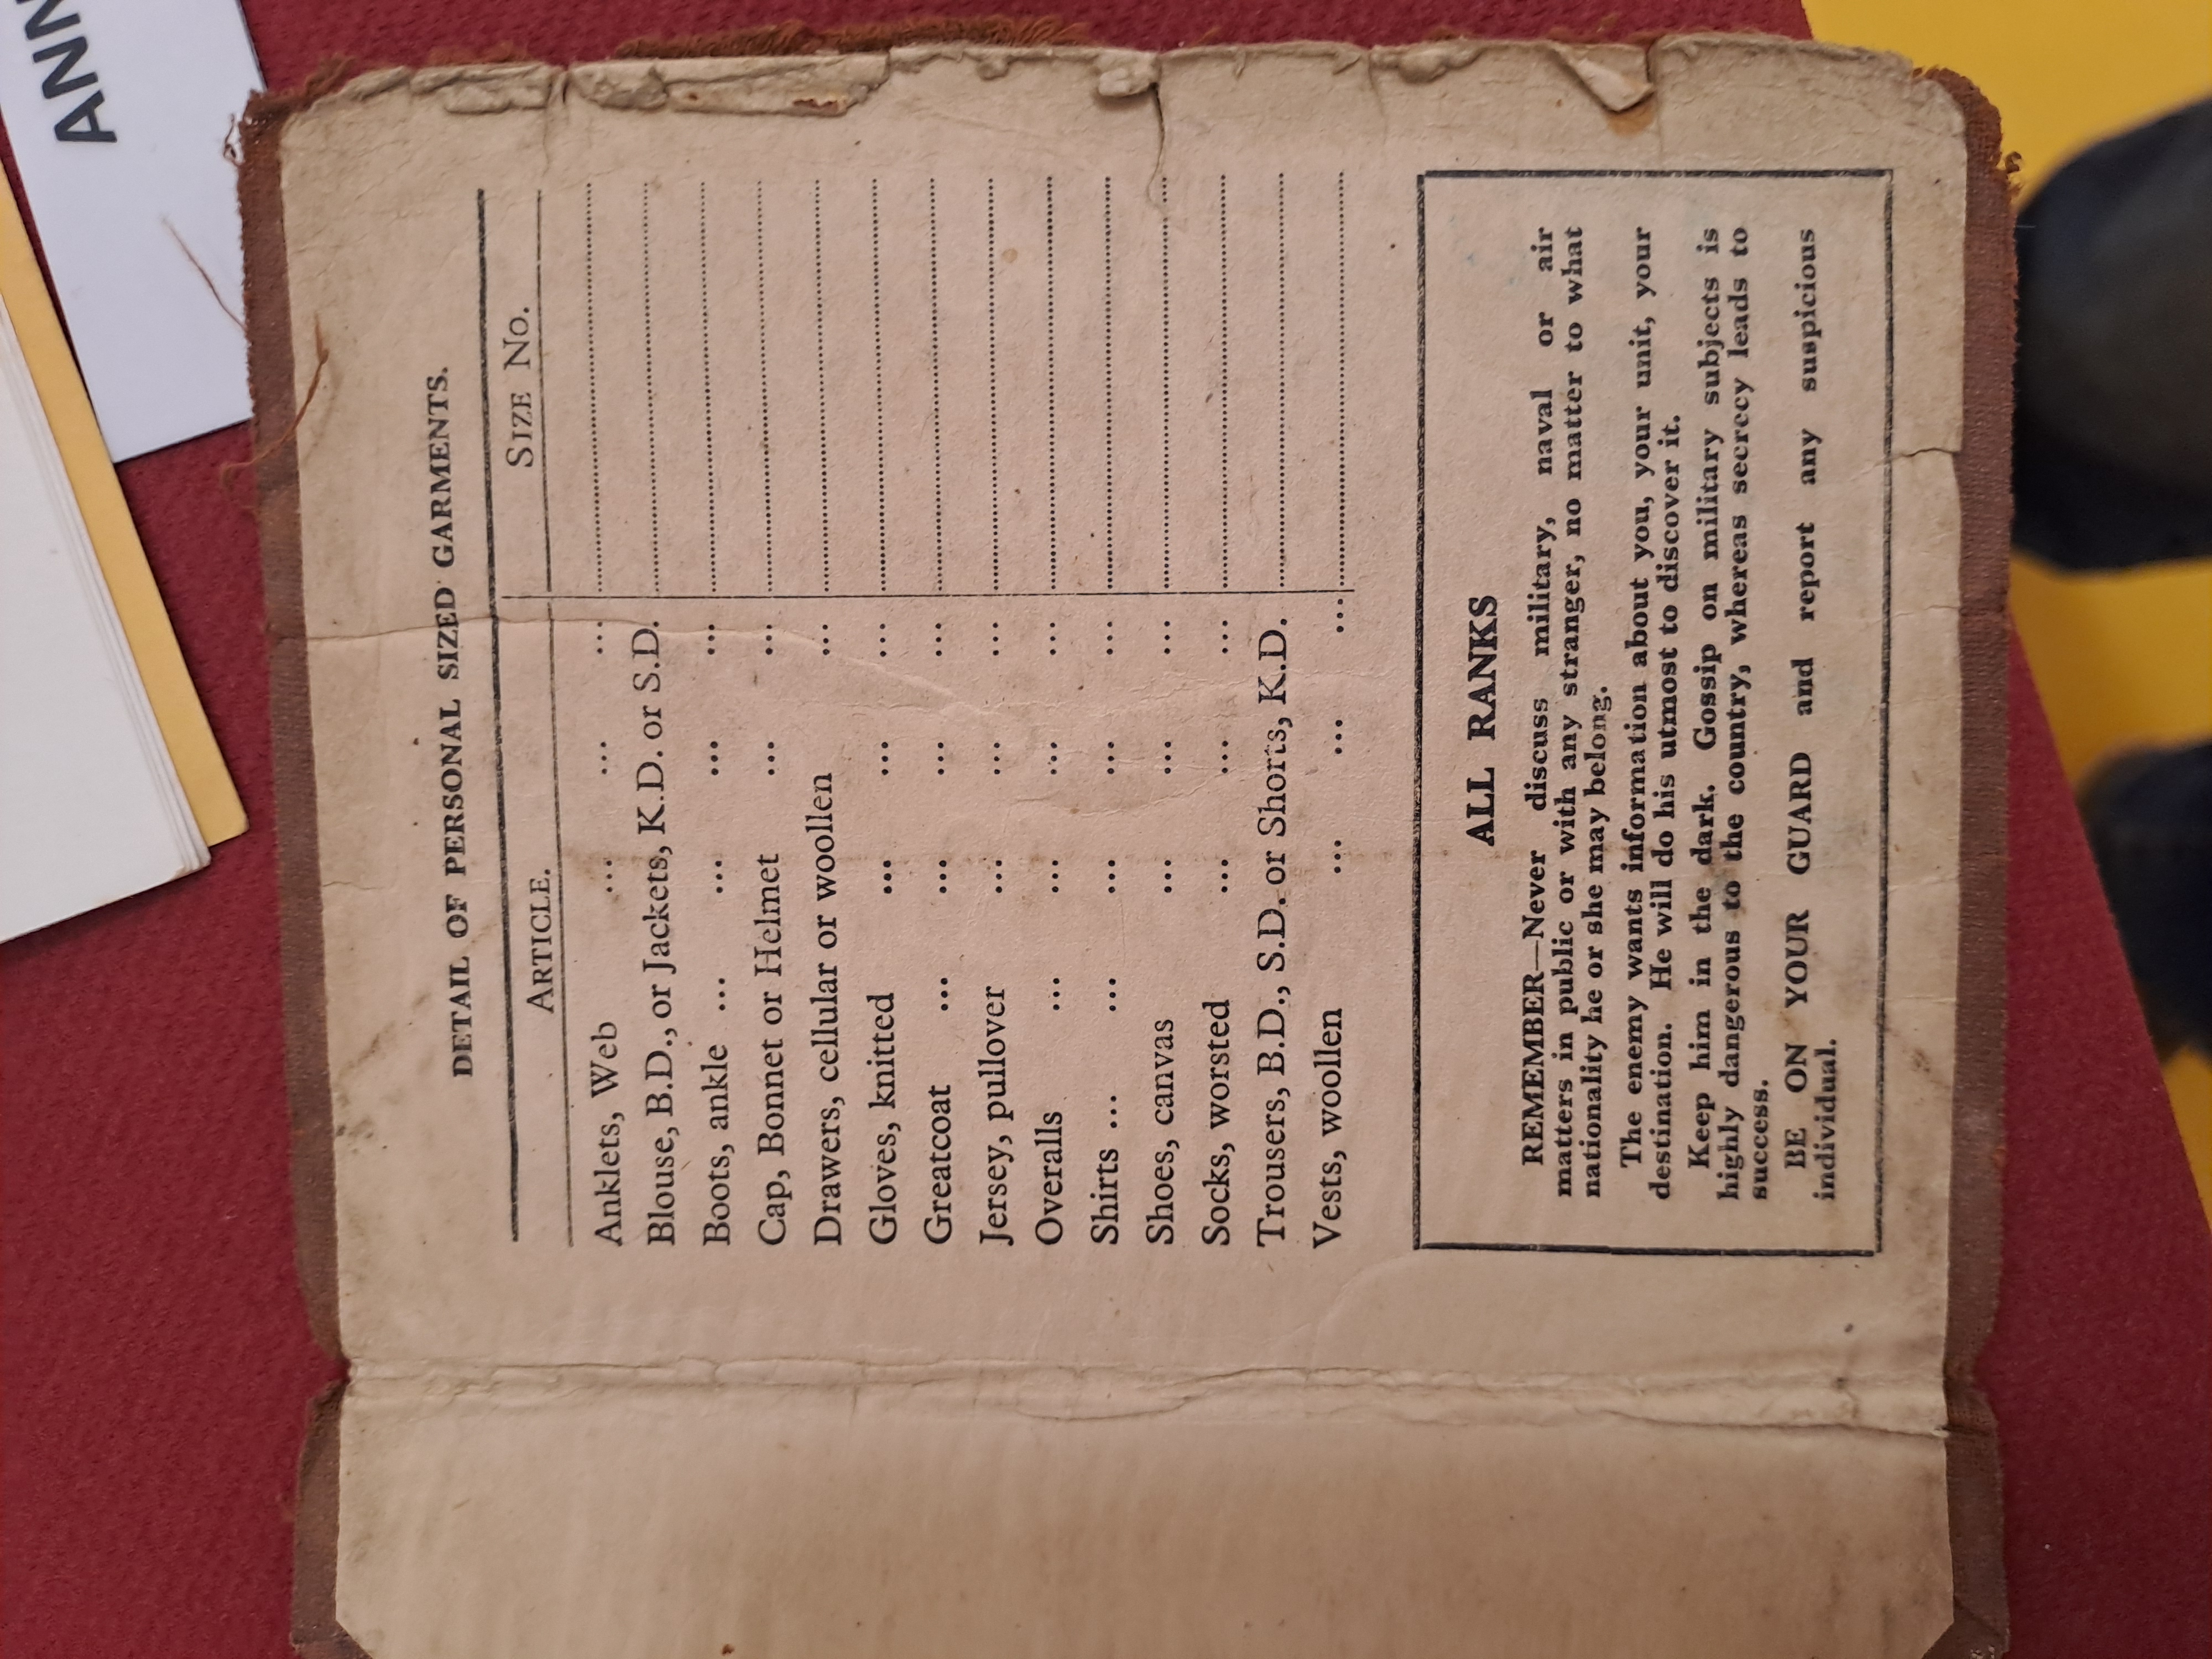 ANN
DETAIL OF PERSONAL SIZED GARMENTS.
ARTICLE. SIZE No.
Anklets, Web ... ... ...
Blouse, B.D., or Jackets, K.D. or S.D.
Boots, ankle ... ... ... ...
Cap, Bonnet or Helmet ... ...
Drawers, cellular or woollen ...
Gloves, knitted ... ... ...
Greatcoat ... ... ... ...
Jersey, pullover ... ... ...
Overalls ... ... ... ...
Shirts ... ... ... ... ...
Shoes, canvas ... ... ...
Socks, worsted ... ... ...
Trousers, B.D., S.D. or Shorts, K.D.
Vests, woollen ... ... ...
ALL RANKS
REMEMBER—Never discuss military, naval or air
matters in public or with any stranger, no matter to what
nationality he or she may belong.
The enemy wants information about you, your unit, your
destination. He will do his utmost to discover it.
Keep him in the dark. Gossip on military subjects is
highly dangerous to the country, whereas secrecy leads to
success.
BE ON YOUR GUARD and report any suspicious
individual.